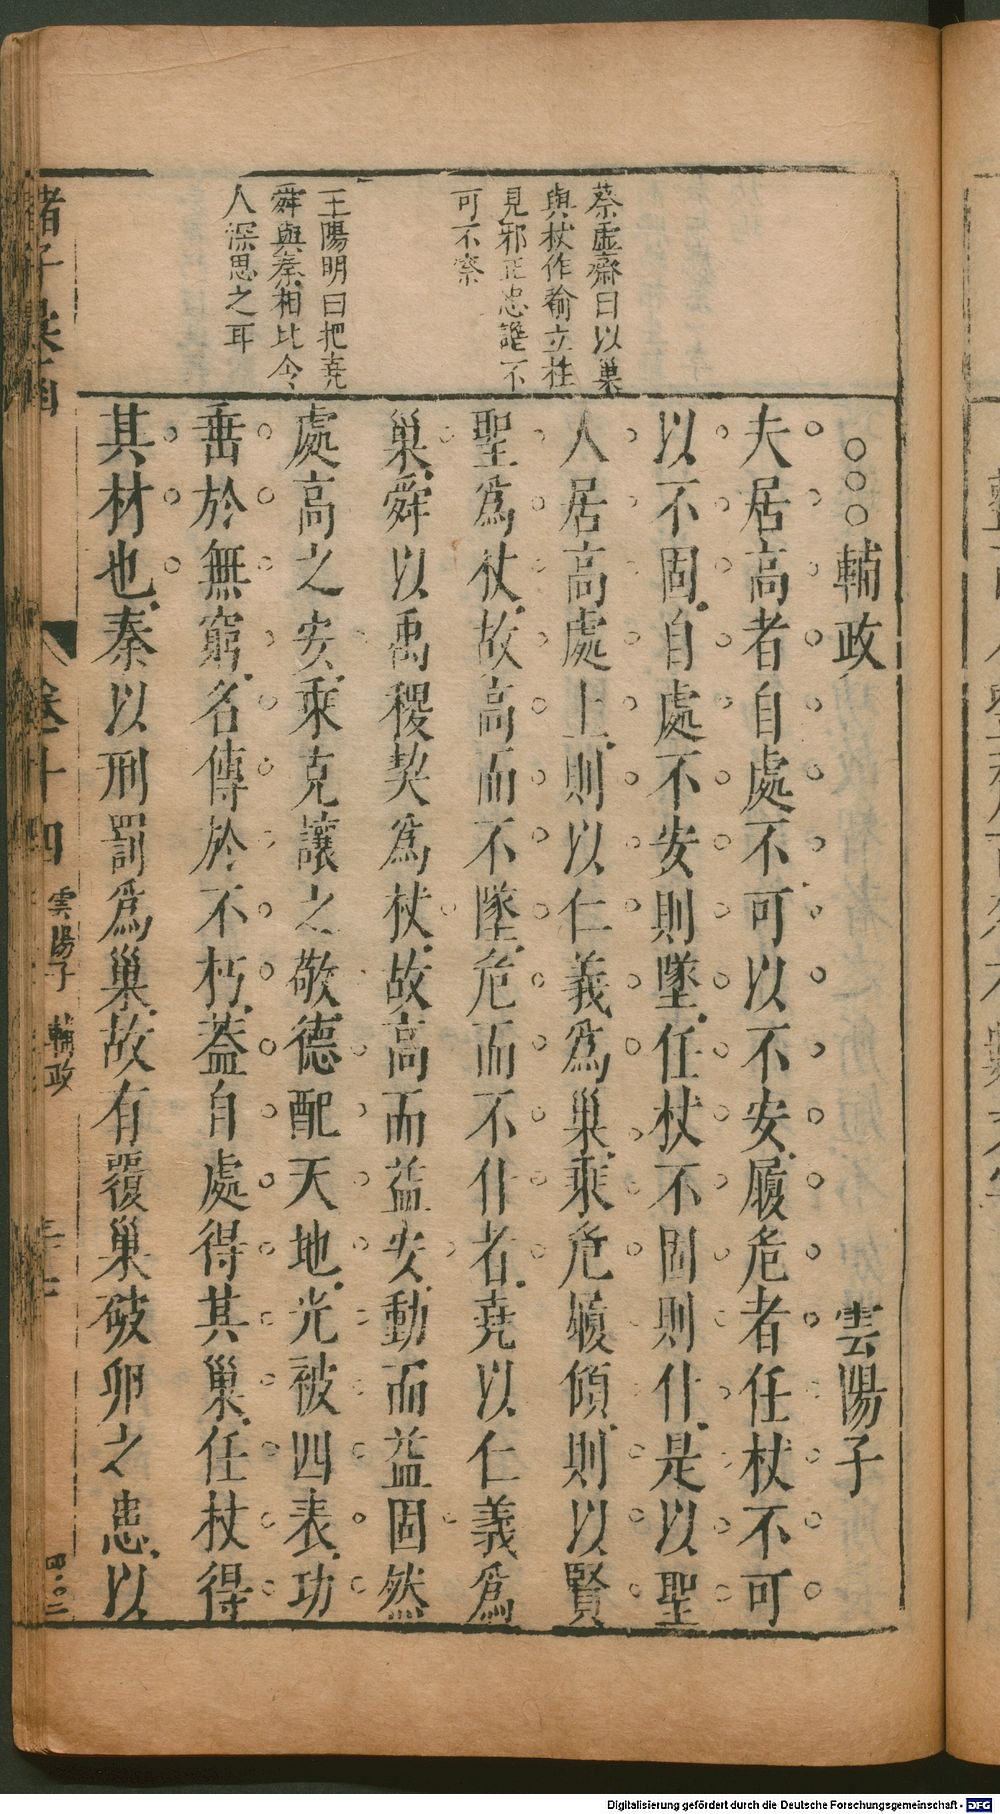 蔡虛齋曰以巢
與杖作喻立柱
見邪正忠讒不
可不察
王陽明曰把堯
舜與秦相比令
人深思之耳
○○○輔政 雲陽子
夫居高者自處不可以不安履危者任杖不可
以不固自處不安則墜任杖不固則仆是以聖
人居高處上則以仁義爲巢乘危履傾則以賢
聖爲杖故高而不墜危而不仆者堯以仁義爲
巢舜以禹稷契爲杖故高而益安動而益固然
處高之安乘克讓之敬德配天地光被四表功
垂於無窮名傳於不朽蓋自處得其巢任杖得
其材也秦以刑罰爲巢故有覆巢破卵之患以
諸子 卷十四 雲陽子 輔政
Digitalisierung gefördert durch die Deutsche Forschungsgemeinschaft - DFG